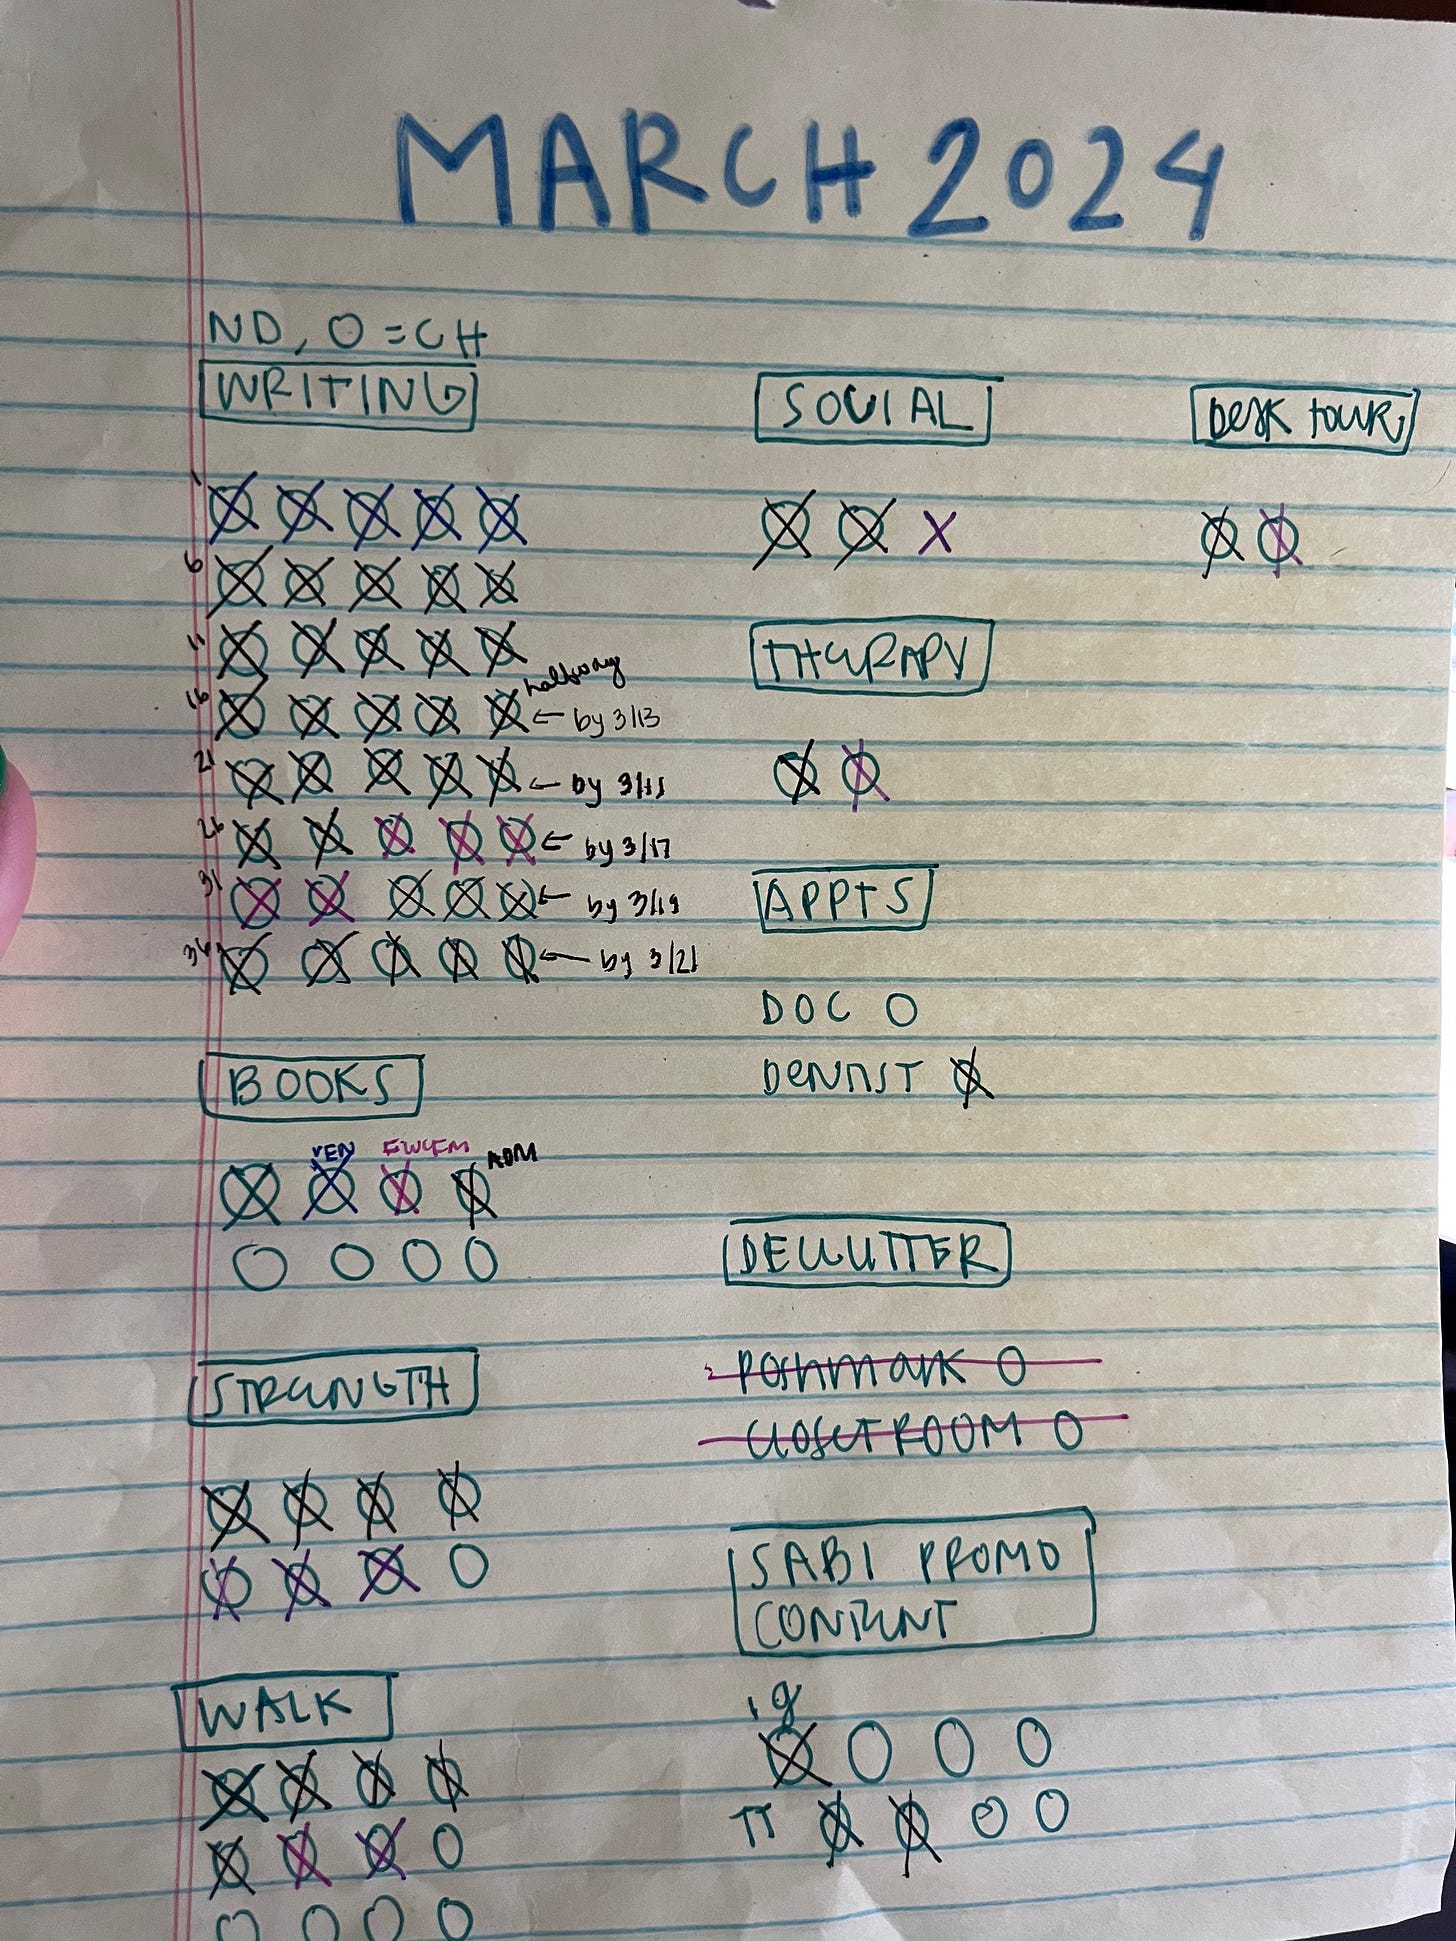 MARCH 2024
ND, O = CH
WRITING
1
6
11
16 halfway ← by 3/13
21 ← by 3/15
26 ← by 3/17
31 ← by 3/19
36 ← by 3/21
BOOKS
YEN EWLEM ADM
STRENGTH
WALK
SOCIAL
X
THERAPY
APPTS
DOC O
DENTIST
DECLUTTER
Poshmark O
CLOSET ROOM O
SABI PROMO
CONTENT
ig
TT
DESK TOUR